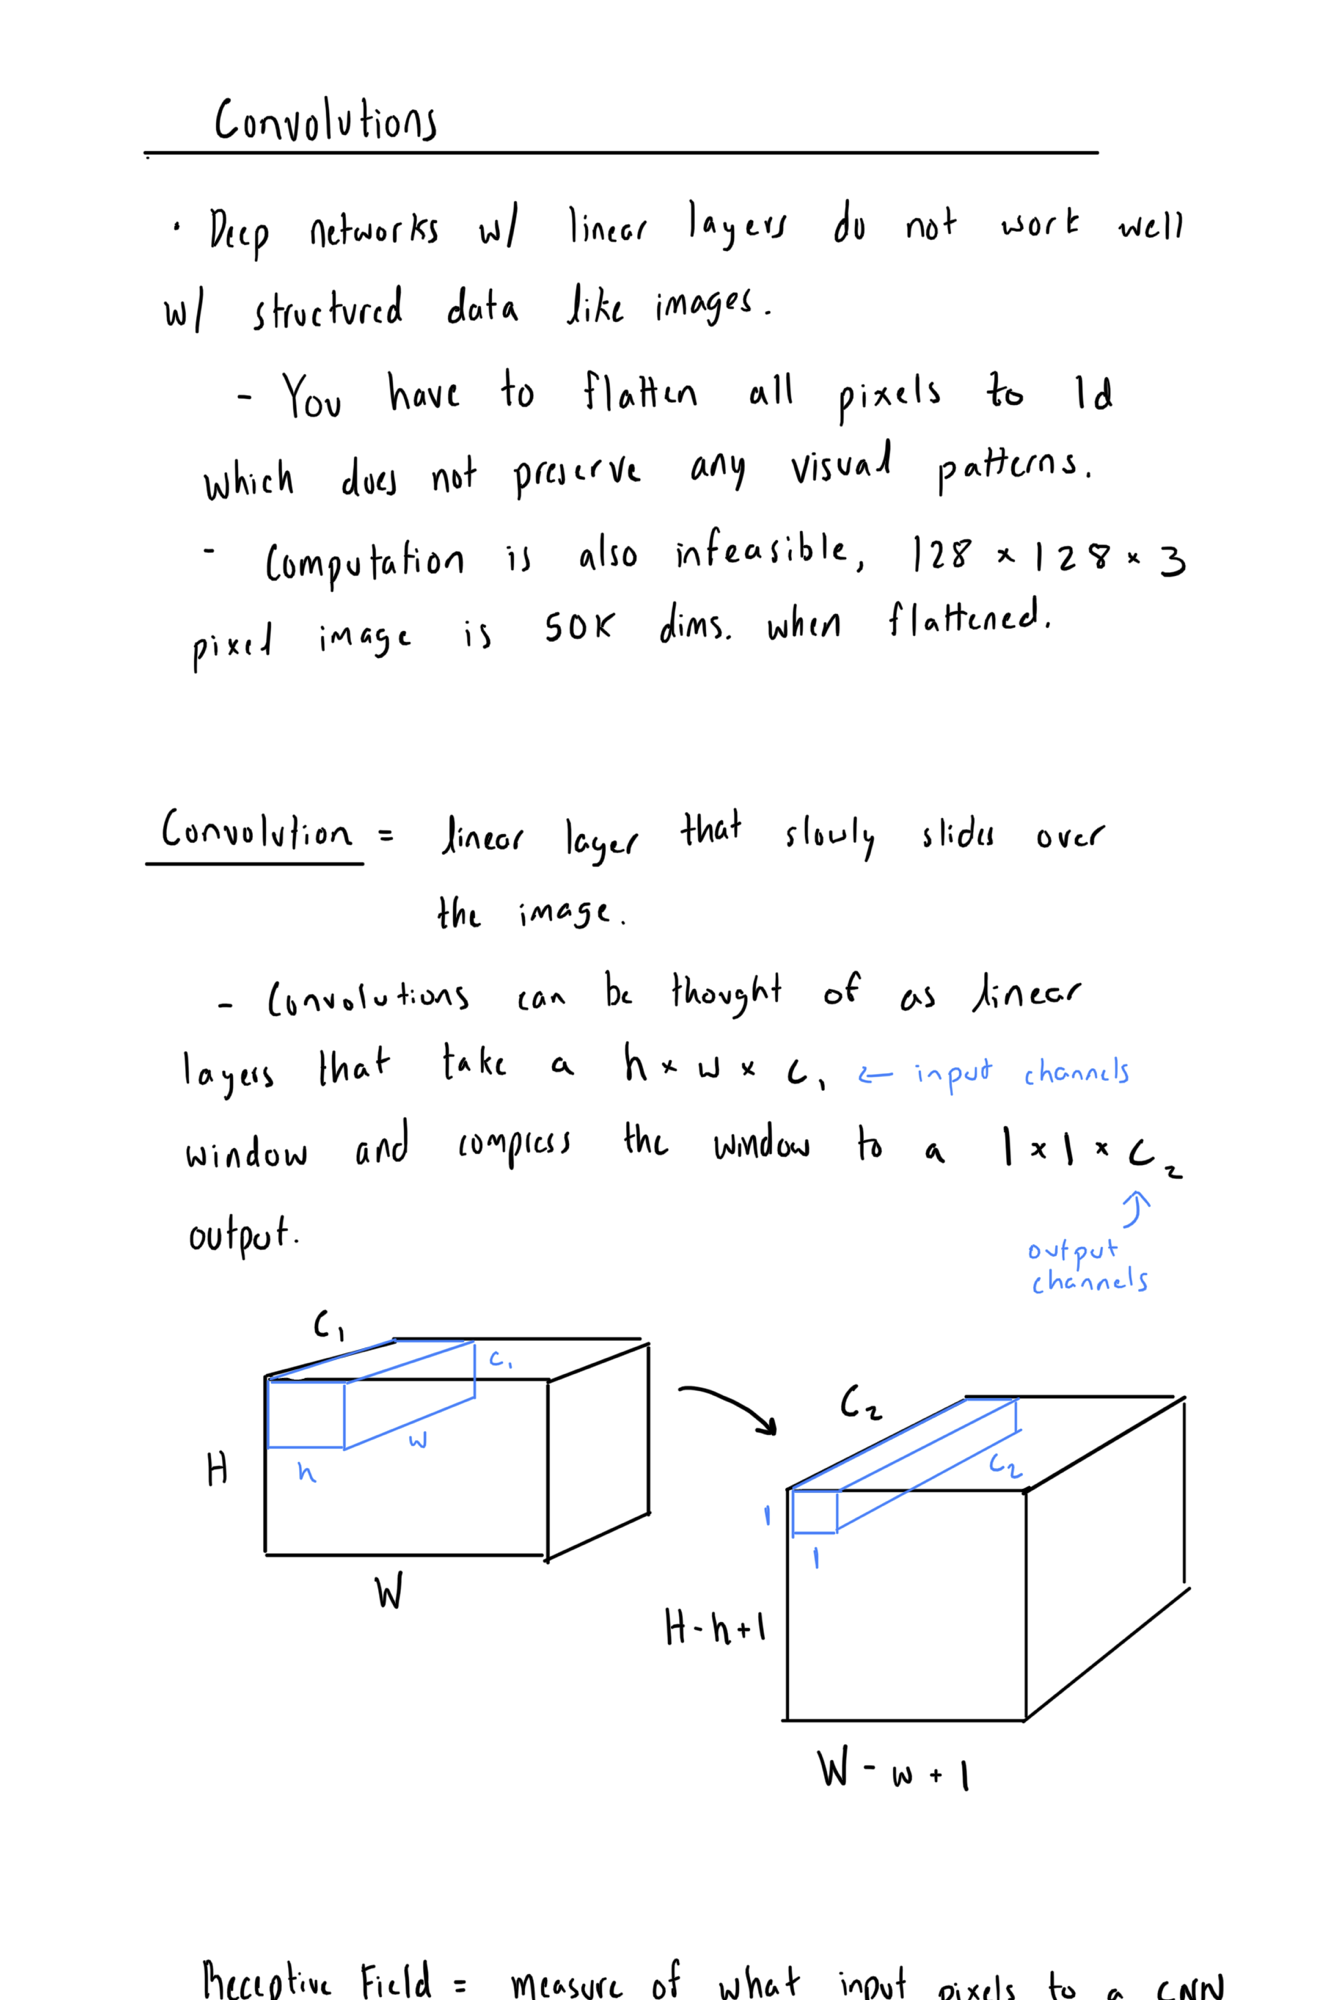 Convolutions
· Deep networks w/ linear layers do not work well
w/ structured data like images.
- You have to flatten all pixels to 1d
which does not preserve any visual patterns.
- Computation is also infeasible, 128 × 128 × 3
pixel image is 50K dims. when flattened.
Convolution = linear layer that slowly slides over
the image.
- Convolutions can be thought of as linear
layers that take a h × w × C₁ ← input channels
window and compress the window to a 1 × 1 × C₂
output.
↑
output
channels
C₁
C₁
w
h
H
W
C₂
C₂
1
1
H - h + 1
W - w + 1
Receptive Field = measure of what input pixels to a CNN